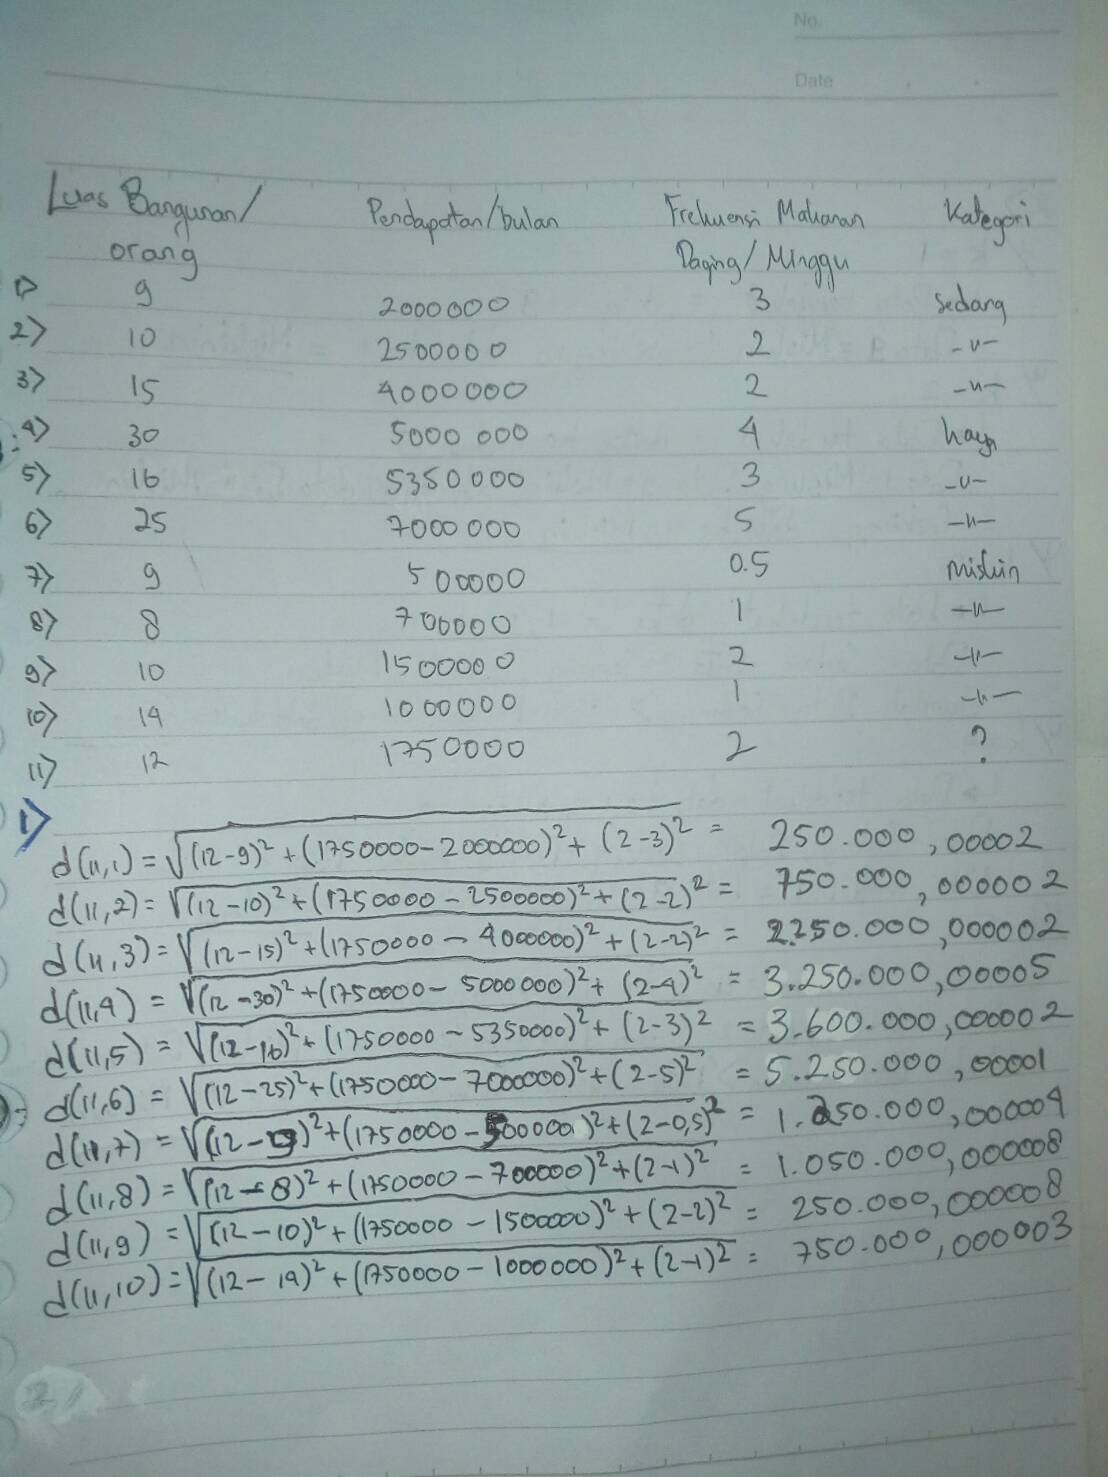 No.
Date
Luas Bangunan/orang Pendapatan/bulan Frekuensi Makanan Daging/Minggu Kategori
1) 9 2000000 3 Sedang
2) 10 2500000 2 -u-
3) 15 4000000 2 -u-
4) 30 5000 000 4 kaya
5) 16 5350000 3 -u-
6) 25 7000 000 5 -u-
7) 9 500000 0.5 miskin
8) 8 700000 1 -u-
9) 10 1500000 2 -u-
10) 14 1000000 1 -u-
11) 12 1750000 2 ?
1)
d(11,1) = √(12-9)² + (1750000-2000000)² + (2-3)² = 250.000,00002
d(11,2) = √(12-10)² + (1750000-2500000)² + (2-2)² = 750.000,000002
d(11,3) = √(12-15)² + (1750000-4000000)² + (2-2)² = 2.250.000,000002
d(11,4) = √(12-30)² + (1750000-5000000)² + (2-4)² = 3.250.000,00005
d(11,5) = √(12-16)² + (1750000-5350000)² + (2-3)² = 3.600.000,000002
d(11,6) = √(12-25)² + (1750000-7000000)² + (2-5)² = 5.250.000,00001
d(11,7) = √(12-9)² + (1750000-500000)² + (2-0,5)² = 1.250.000,000004
d(11,8) = √(12-8)² + (1750000-700000)² + (2-1)² = 1.050.000,000008
d(11,9) = √(12-10)² + (1750000-1500000)² + (2-2)² = 250.000,000008
d(11,10) = √(12-14)² + (1750000-1000000)² + (2-1)² = 750.000,000003